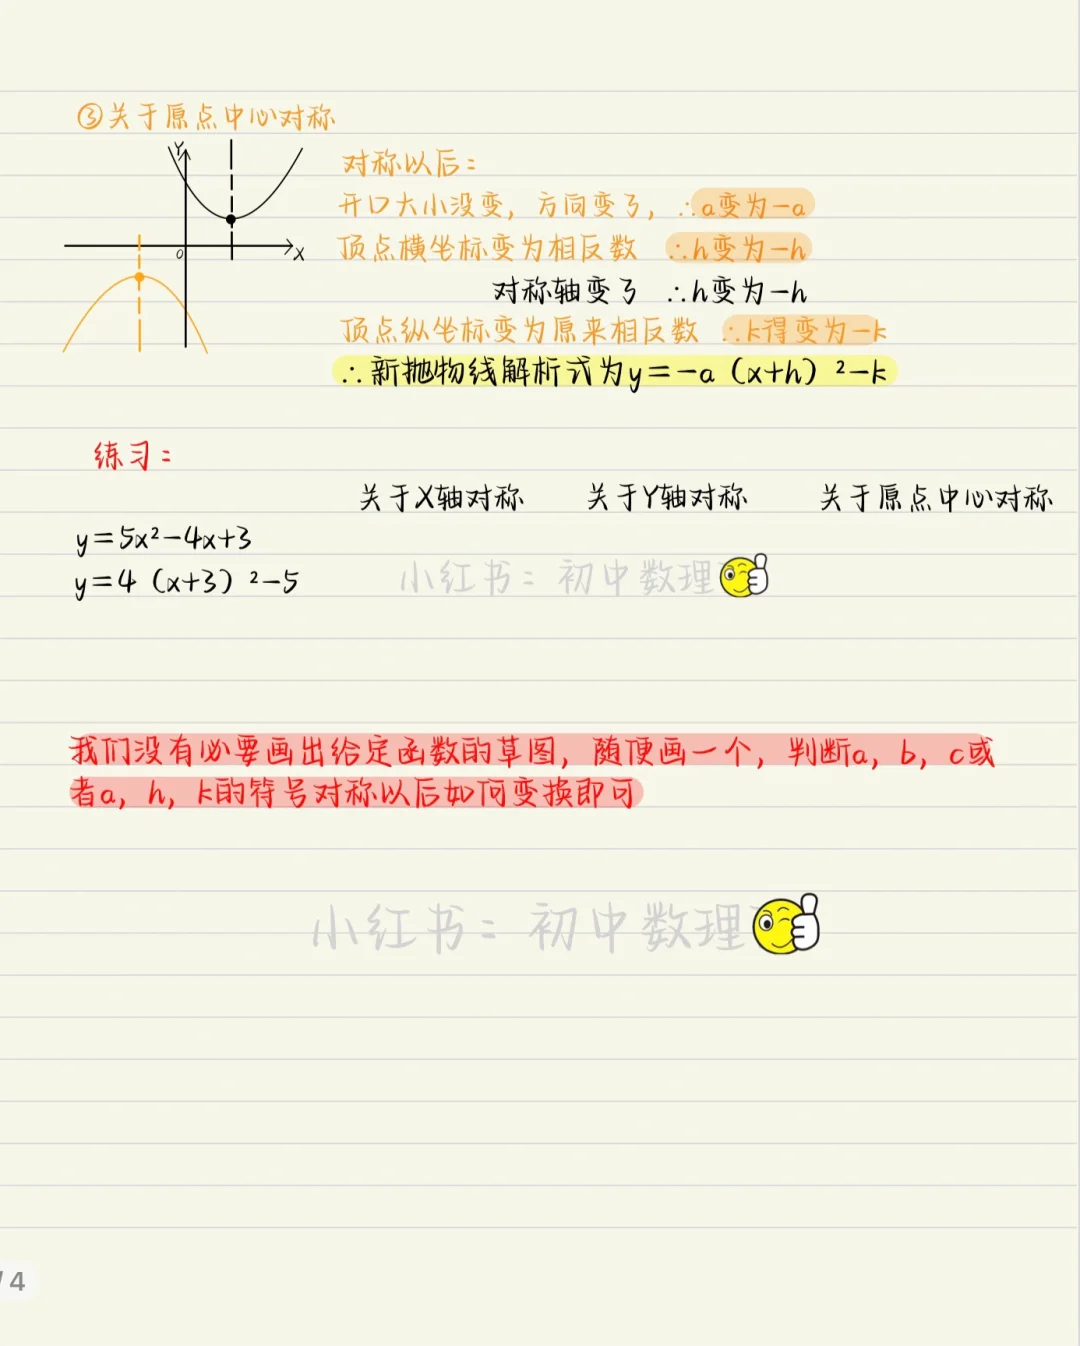 ③关于原点中心对称
Y
对称以后：
开口大小没变，方向变了，∴a变为－a
O
X
顶点横坐标变为相反数 ∴h变为－h
对称轴变了 ∴h变为－h
顶点纵坐标变为原来相反数 ∴k得变为－k
∴新抛物线解析式为y＝－a（x+h）²－k
练习：
关于X轴对称 关于Y轴对称 关于原点中心对称
y＝5x²－4x+3
y＝4（x+3）²－5
小红书：初中数理
我们没有必要画出给定函数的草图，随便画一个，判断a，b，c或
者a，h，k的符号对称以后如何变换即可
小红书：初中数理
/4